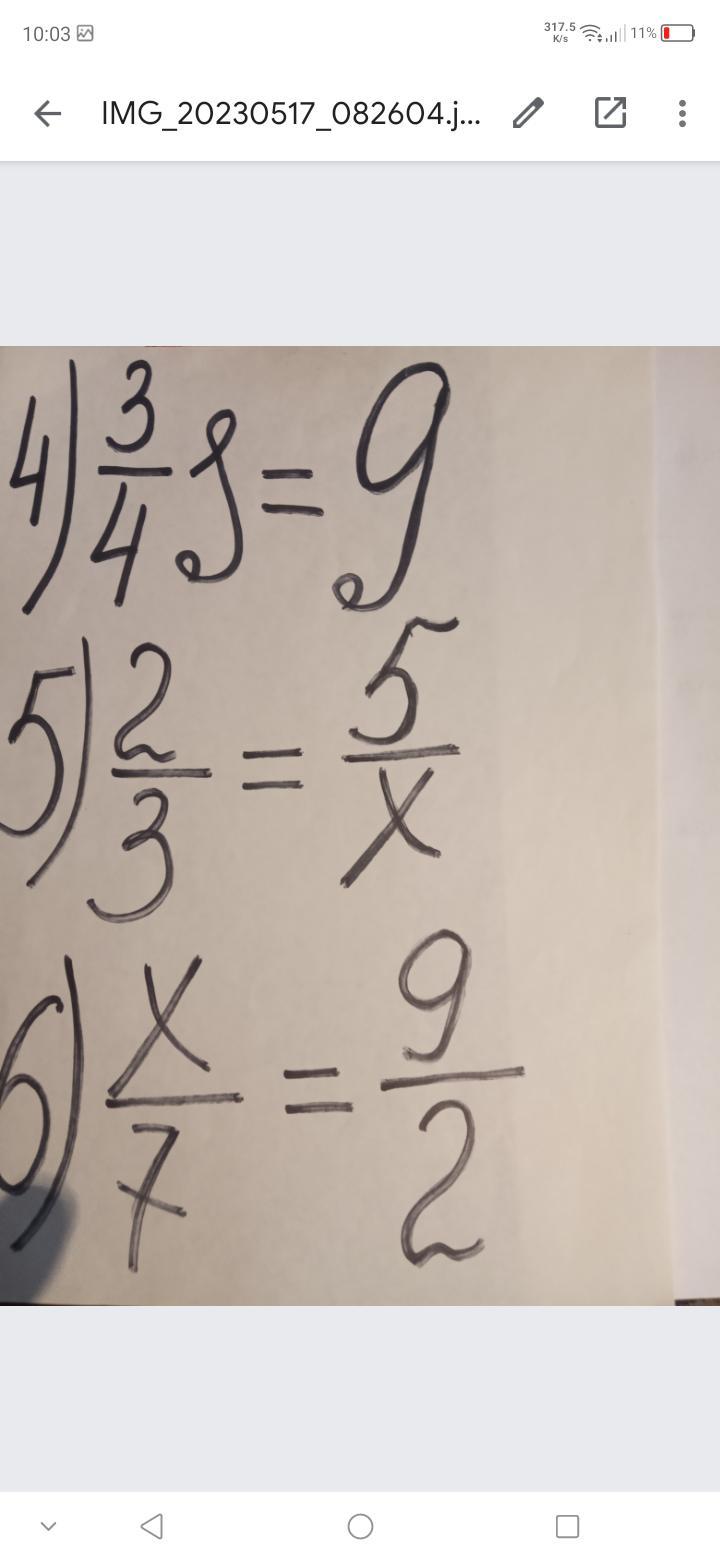 10:03 317.5 K/s 11%
IMG_20230517_082604.j...
4) 3/4 y = 9
5) 2/3 = 5/x
6) x/7 = 9/2